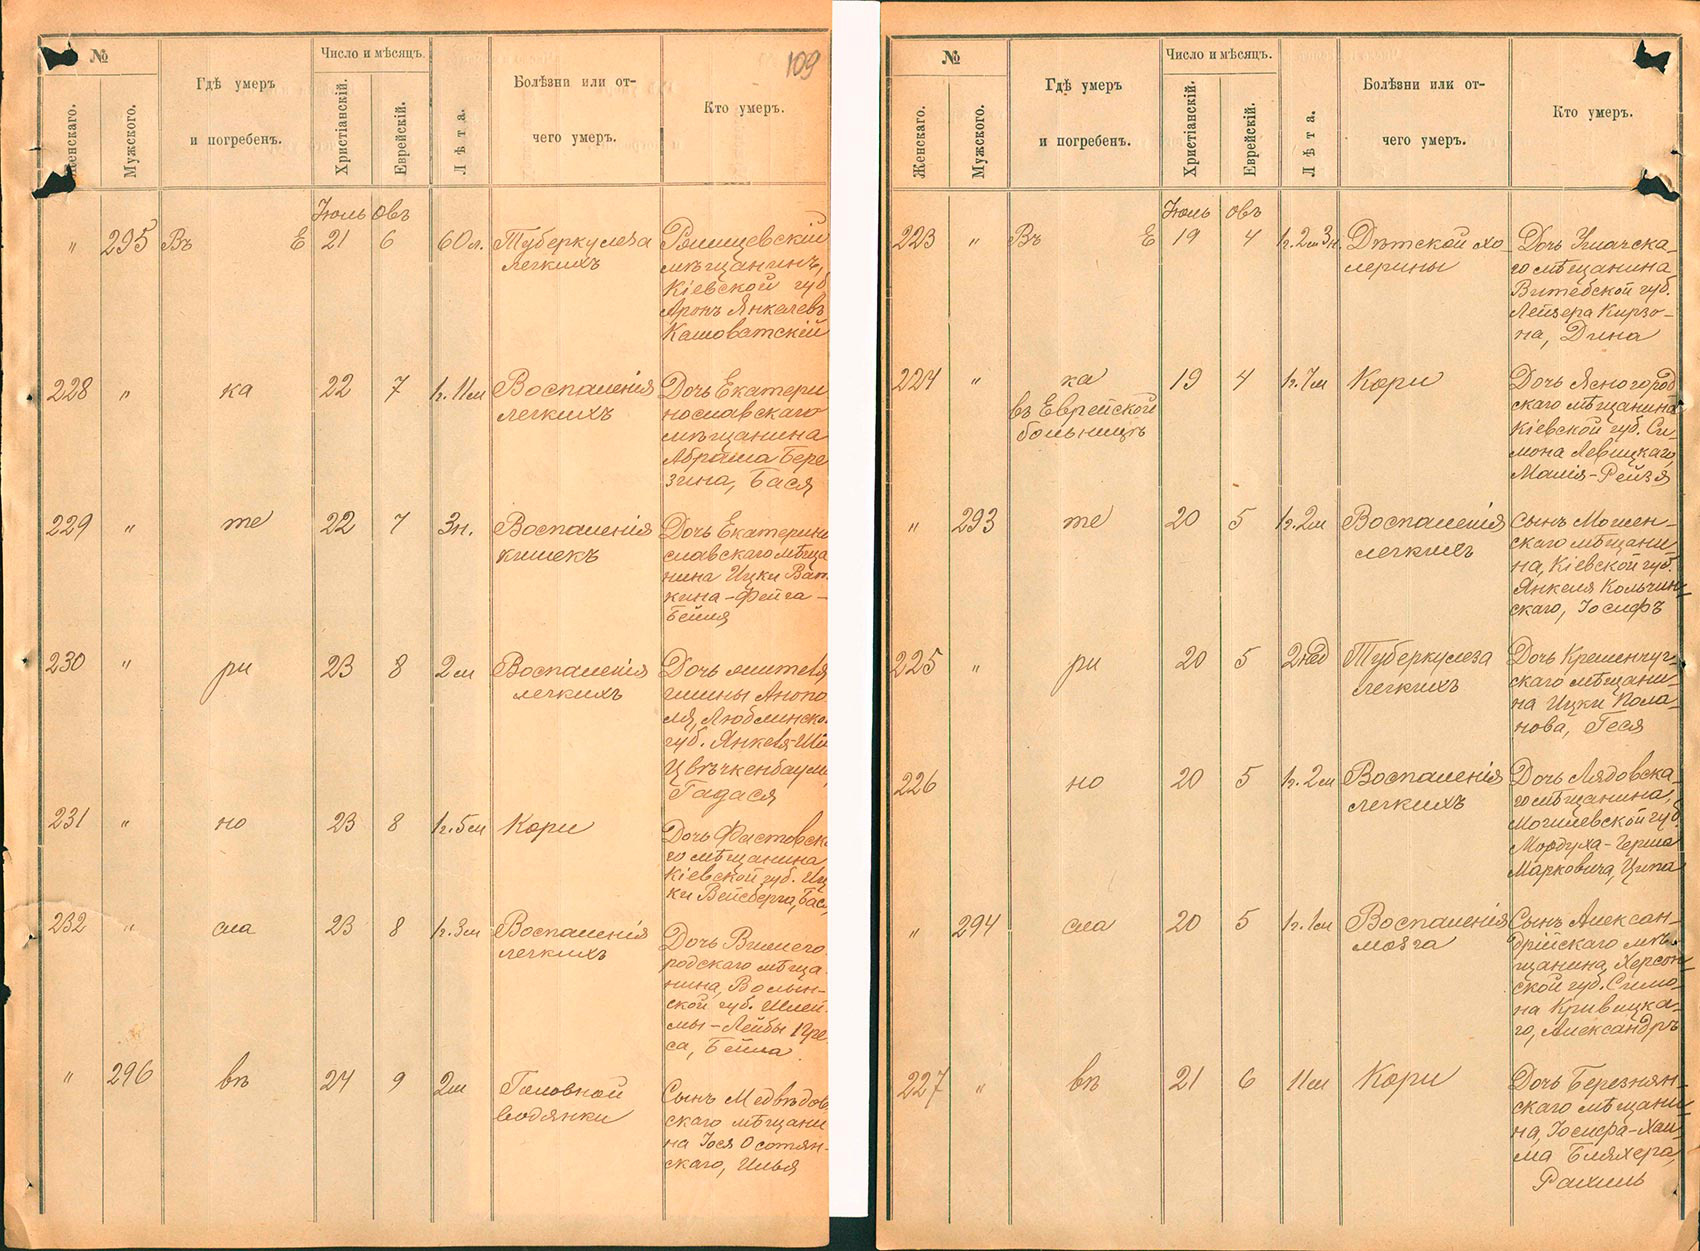 109
№
Женскаго.
Мужского.
Гдѣ умеръ
и погребенъ.
Число и мѣсяцъ.
Христіанскій.
Еврейскій.
Лѣта.
Болѣзни или от-
чего умеръ.
Кто умеръ.
Іюль Овъ
" 295 Въ Е 21 6 60 л. Туберкулеза
легкихъ
мѣщанинъ,
Кіевской губ
Аронъ Янкелевъ
Кашоватскій
228 " ка 22 7 1г. 11м Воспаленія
легкихъ
Дочь Екатери
нославскаго
мѣщанина
Абрама Бере
зина, Бася
229 " те 22 7 3н. Воспаленія
кишекъ
Дочь Екатерино
славскаго мѣща
нина Ицки
кина-Фейга-
Бейля
230 " ри 23 8 2м Воспаленія
легкихъ
Дочь жителя
гмины Анопо
ля, Люблинско
губ. Янкеля-Ш
Цвѣчкенбаума
Гадася
231 " но 23 8 1г. 5м Кори
Дочь Фастовска
го мѣщанина
Кіевской губ. Иц
ки Вейсберга, Бас
232 " сла 23 8 1г. 3м Воспаленія
легкихъ
Дочь Вышего
родскаго мѣща
нина, Волын-
ской губ. Шлей
мы-Лейбы
са, Бейла
" 296 въ 24 9 2м Головной
водянки
Сынъ Медвѣдов
скаго мѣщани
на Іося Осотян-
скаго, Илья
№
Женскаго.
Мужского.
Гдѣ умеръ
и погребенъ.
Число и мѣсяцъ.
Христіанскій.
Еврейскій.
Лѣта.
Болѣзни или от-
чего умеръ.
Кто умеръ.
Іюль Овъ
223 " Въ Е 19 4 1г. 2м 3н. Дѣтской хо
лерины
Дочь
го мѣщанина
Витебской губ.
Лейзера Кирзо-
на, Дина
224 " ка 19 4 1г. 7м Кори
въ Еврейской
больницѣ
Дочь Ясногород
скаго мѣщанина
Кіевской губ. Си-
мона Левицкаго,
Малія-Рейзя
" 293 те 20 5 1г. 2м Воспаленія
легкихъ
Сынъ Мошен-
скаго мѣщани-
на, Кіевской губ.
Янкеля Кольчин-
скаго, Іосифъ
225 " ри 20 5 2нед Туберкулеза
легкихъ
Дочь Кременчуг-
скаго мѣщани-
на Ицки Пола-
нова, Геся
226 " но 20 5 1г. 2м Воспаленія
легкихъ
Дочь Лядовска-
го мѣщанина,
Могилевской губ.
Мордуха-Герша
Марковича, Ципа
" 294 сла 20 5 1г. 1м Воспаленія
мозга
Сынъ Алексан-
дрійскаго мѣ-
щанина, Херсон-
ской губ. Симо-
на Кривицка-
го, Александръ
227 " въ 21 6 11м Кори
Дочь Березнян-
скаго мѣщани-
на, Іосифа-Хаи-
ма Бляхера,
Рахиль